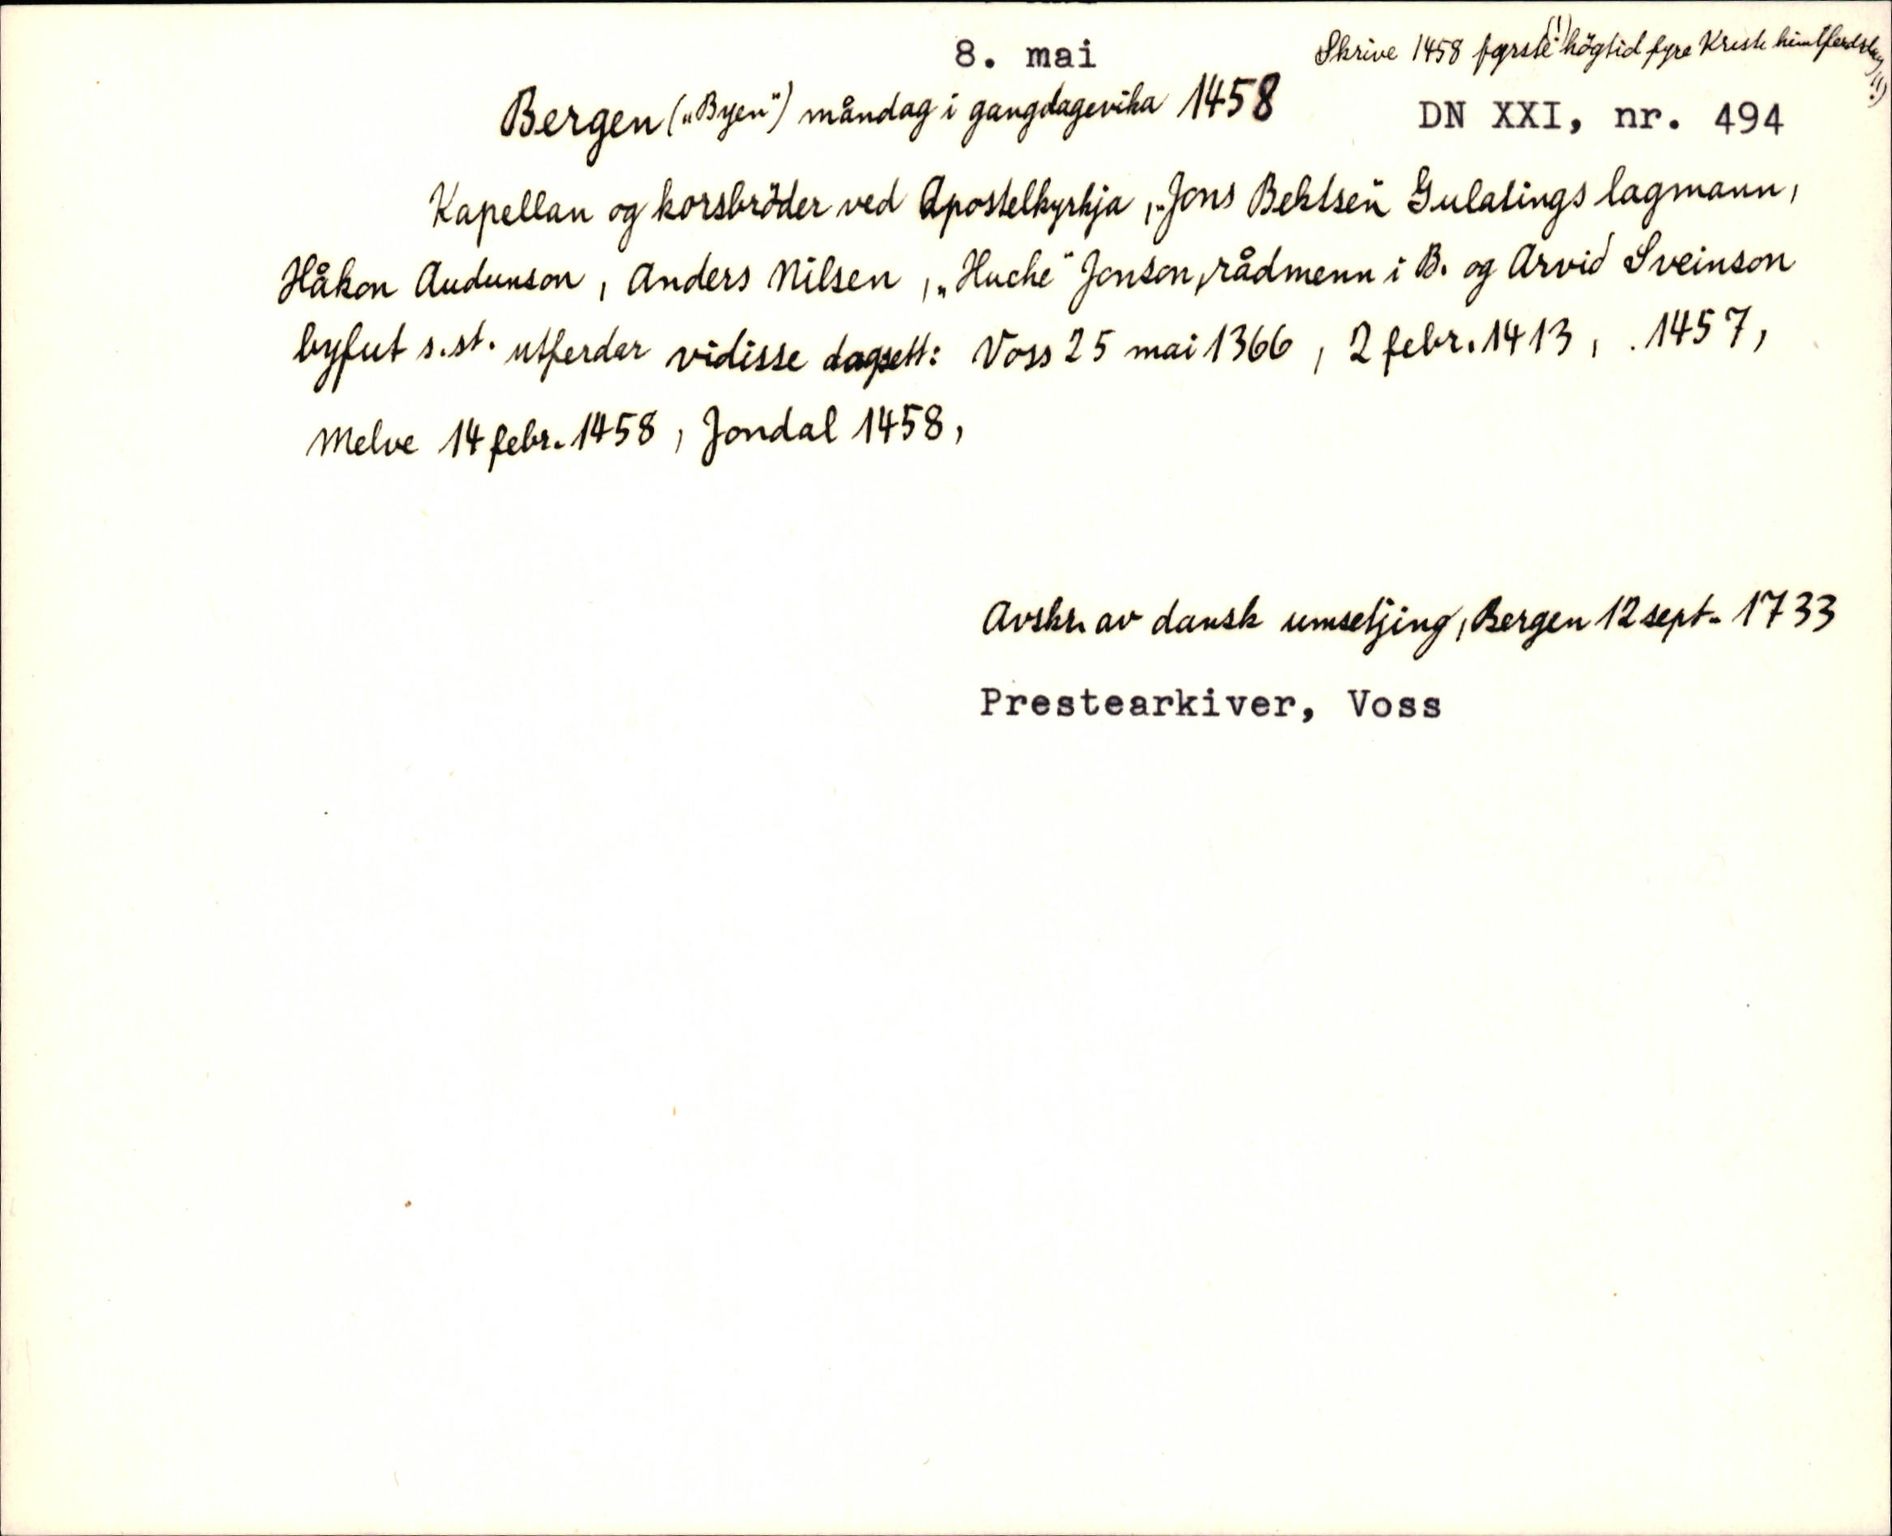 Skrive 1458 fyrste (!) högtid fyre Kriste himlferdsdag (!)
8. mai
Bergen („Byen") måndag i gangdagevika 1458
DN XXI, nr. 494
Kapellan og korsbröder ved Apostelkyrkja, „Jons Bektsen" Gulatings lagmann,
Håkon Audunson, Anders Nilsen, „Huche" Jonson, rådmenn i B. og Arvid Sveinson
byfut s.st. utferdar vidisse dagsett: Voss 25 mai 1366, 2 febr. 1413, . 1457,
Melve 14 febr. 1458, Jondal 1458,
Avskr. av dansk umsetjing, Bergen 12 sept. 1733
Prestearkiver, Voss